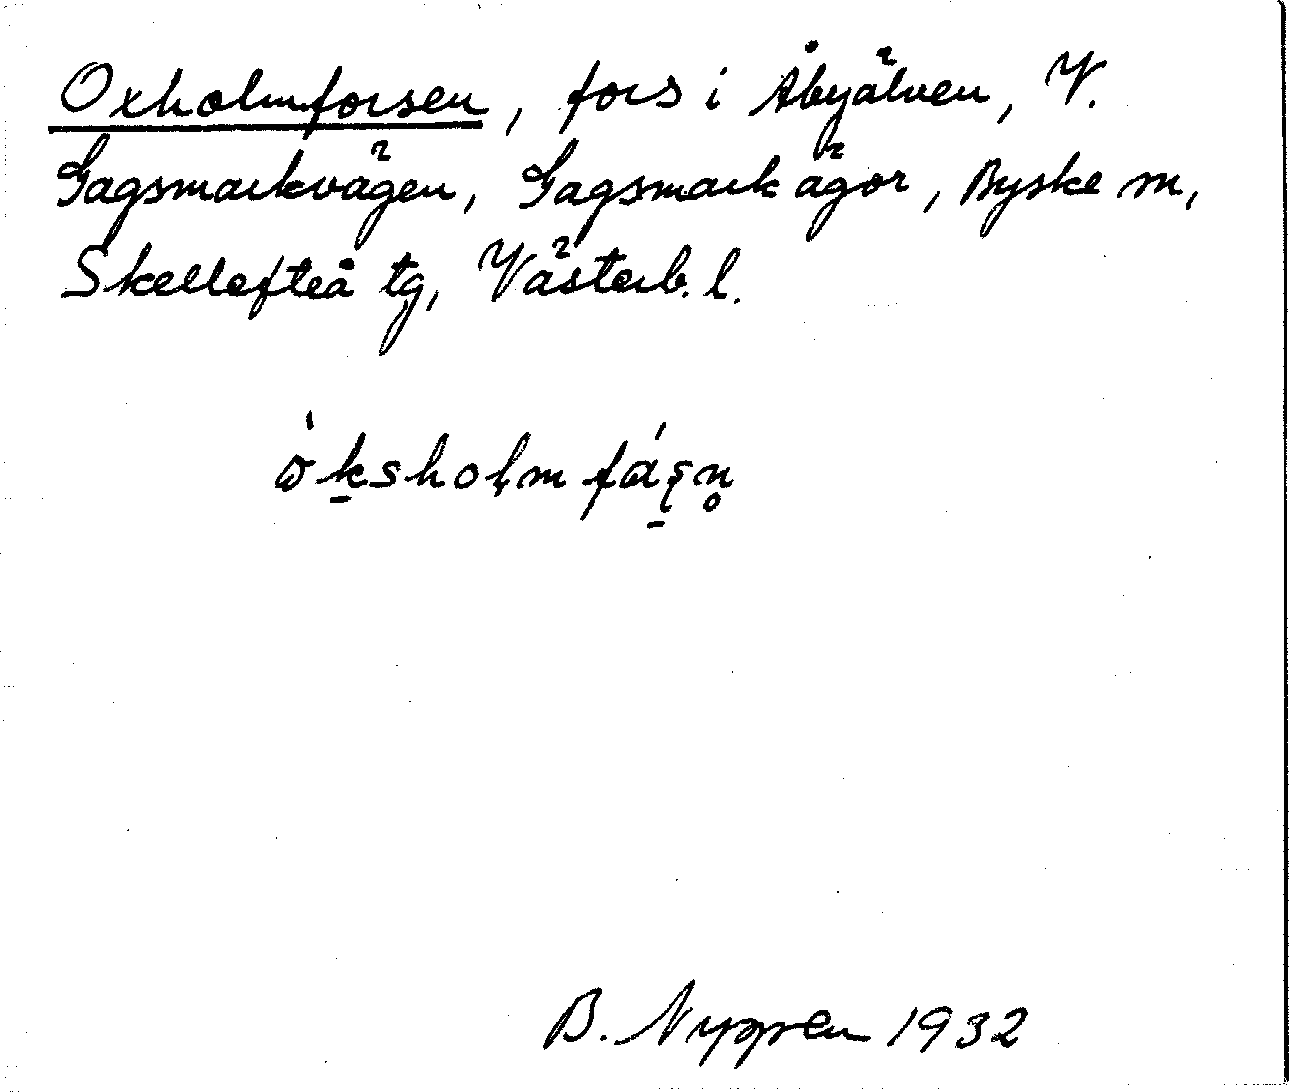 Oxholmforsen, fors i Åbyälven, V.
Gagsmarkvägen, Gagsmark ägor, Byske sn,
Skellefteå tg, Västerb. l.
B. Nygren 1932